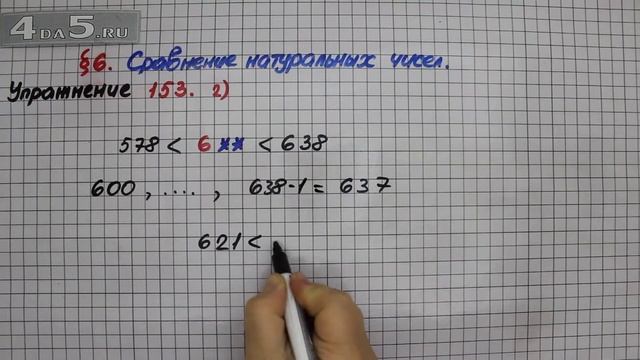 4DA5.RU
§6. Сравнение натуральных чисел.
Упражнение 153. 2)
578 < 6** < 638
600, ...., 638-1 = 637
621 <